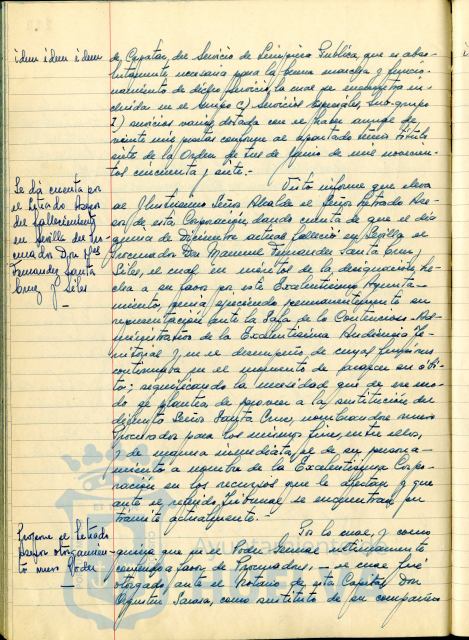 idem idem idem
de Capataz del Servicio de Limpieza Pública, que es abso-
lutamente necesaria para la buena marcha y funcio-
namiento de dicho Servicio, la cual se encuentra in-
cluida en el Grupo C) Servicios Especiales, Sub-grupo
2) servicios varios, dotada con el haber anual de
veinte mil pesetas conforme al apartado
siete de la Orden de de Junio de mil novecien-
tos cincuenta y siete.-
Se dá cuenta por
el Letrado Asesor
del fallecimiento
en Sevilla del Pro-
curador Don
Fernandez Santa
Cruz y Siles
Visto informe que eleva
al Ilustrisimo Señor Alcalde el Señor Letrado Ase-
sor de esta Corporación, dando cuenta de que el dia
quince de Diciembre actual falleció en Sevilla el
Procurador Don Manuel Fernandez Santa Cruz
Siles, el cual en méritos de la designación he-
cha a su favor por este Excelentisimo Ayunta-
miento, venia ejerciendo permanentemente su
representación ante la Sala de lo Contencioso-Ad-
ministrativo de la Excelentisima Audiencia Te-
rritorial y en el desempeño de cuyas funciones
continuaba en el momento de acaecer su óbi-
to; significando la necesidad que de ese mo-
do se plantea de proveer a la sustitución del
difunto Señor Santa Cruz, nombrando nuevo
Procurador para los mismos fines, entre ellos,
y de manera inmediata, el de su persona-
miento a nombre de la Excelentisima Corpo-
ración en los recursos que le afectan y que
ante el referido Tribunal se encuentran en
trámite actualmente.
Propone el Letrado
Asesor otorgamien-
to nuevo Poder
Por lo cual, y como
quiera que en el Poder General ultimamente
conferido a favor de Procuradores, - el cual fué
otorgado, ante el Notario de esta Capital Don
como sustituto de su compañero